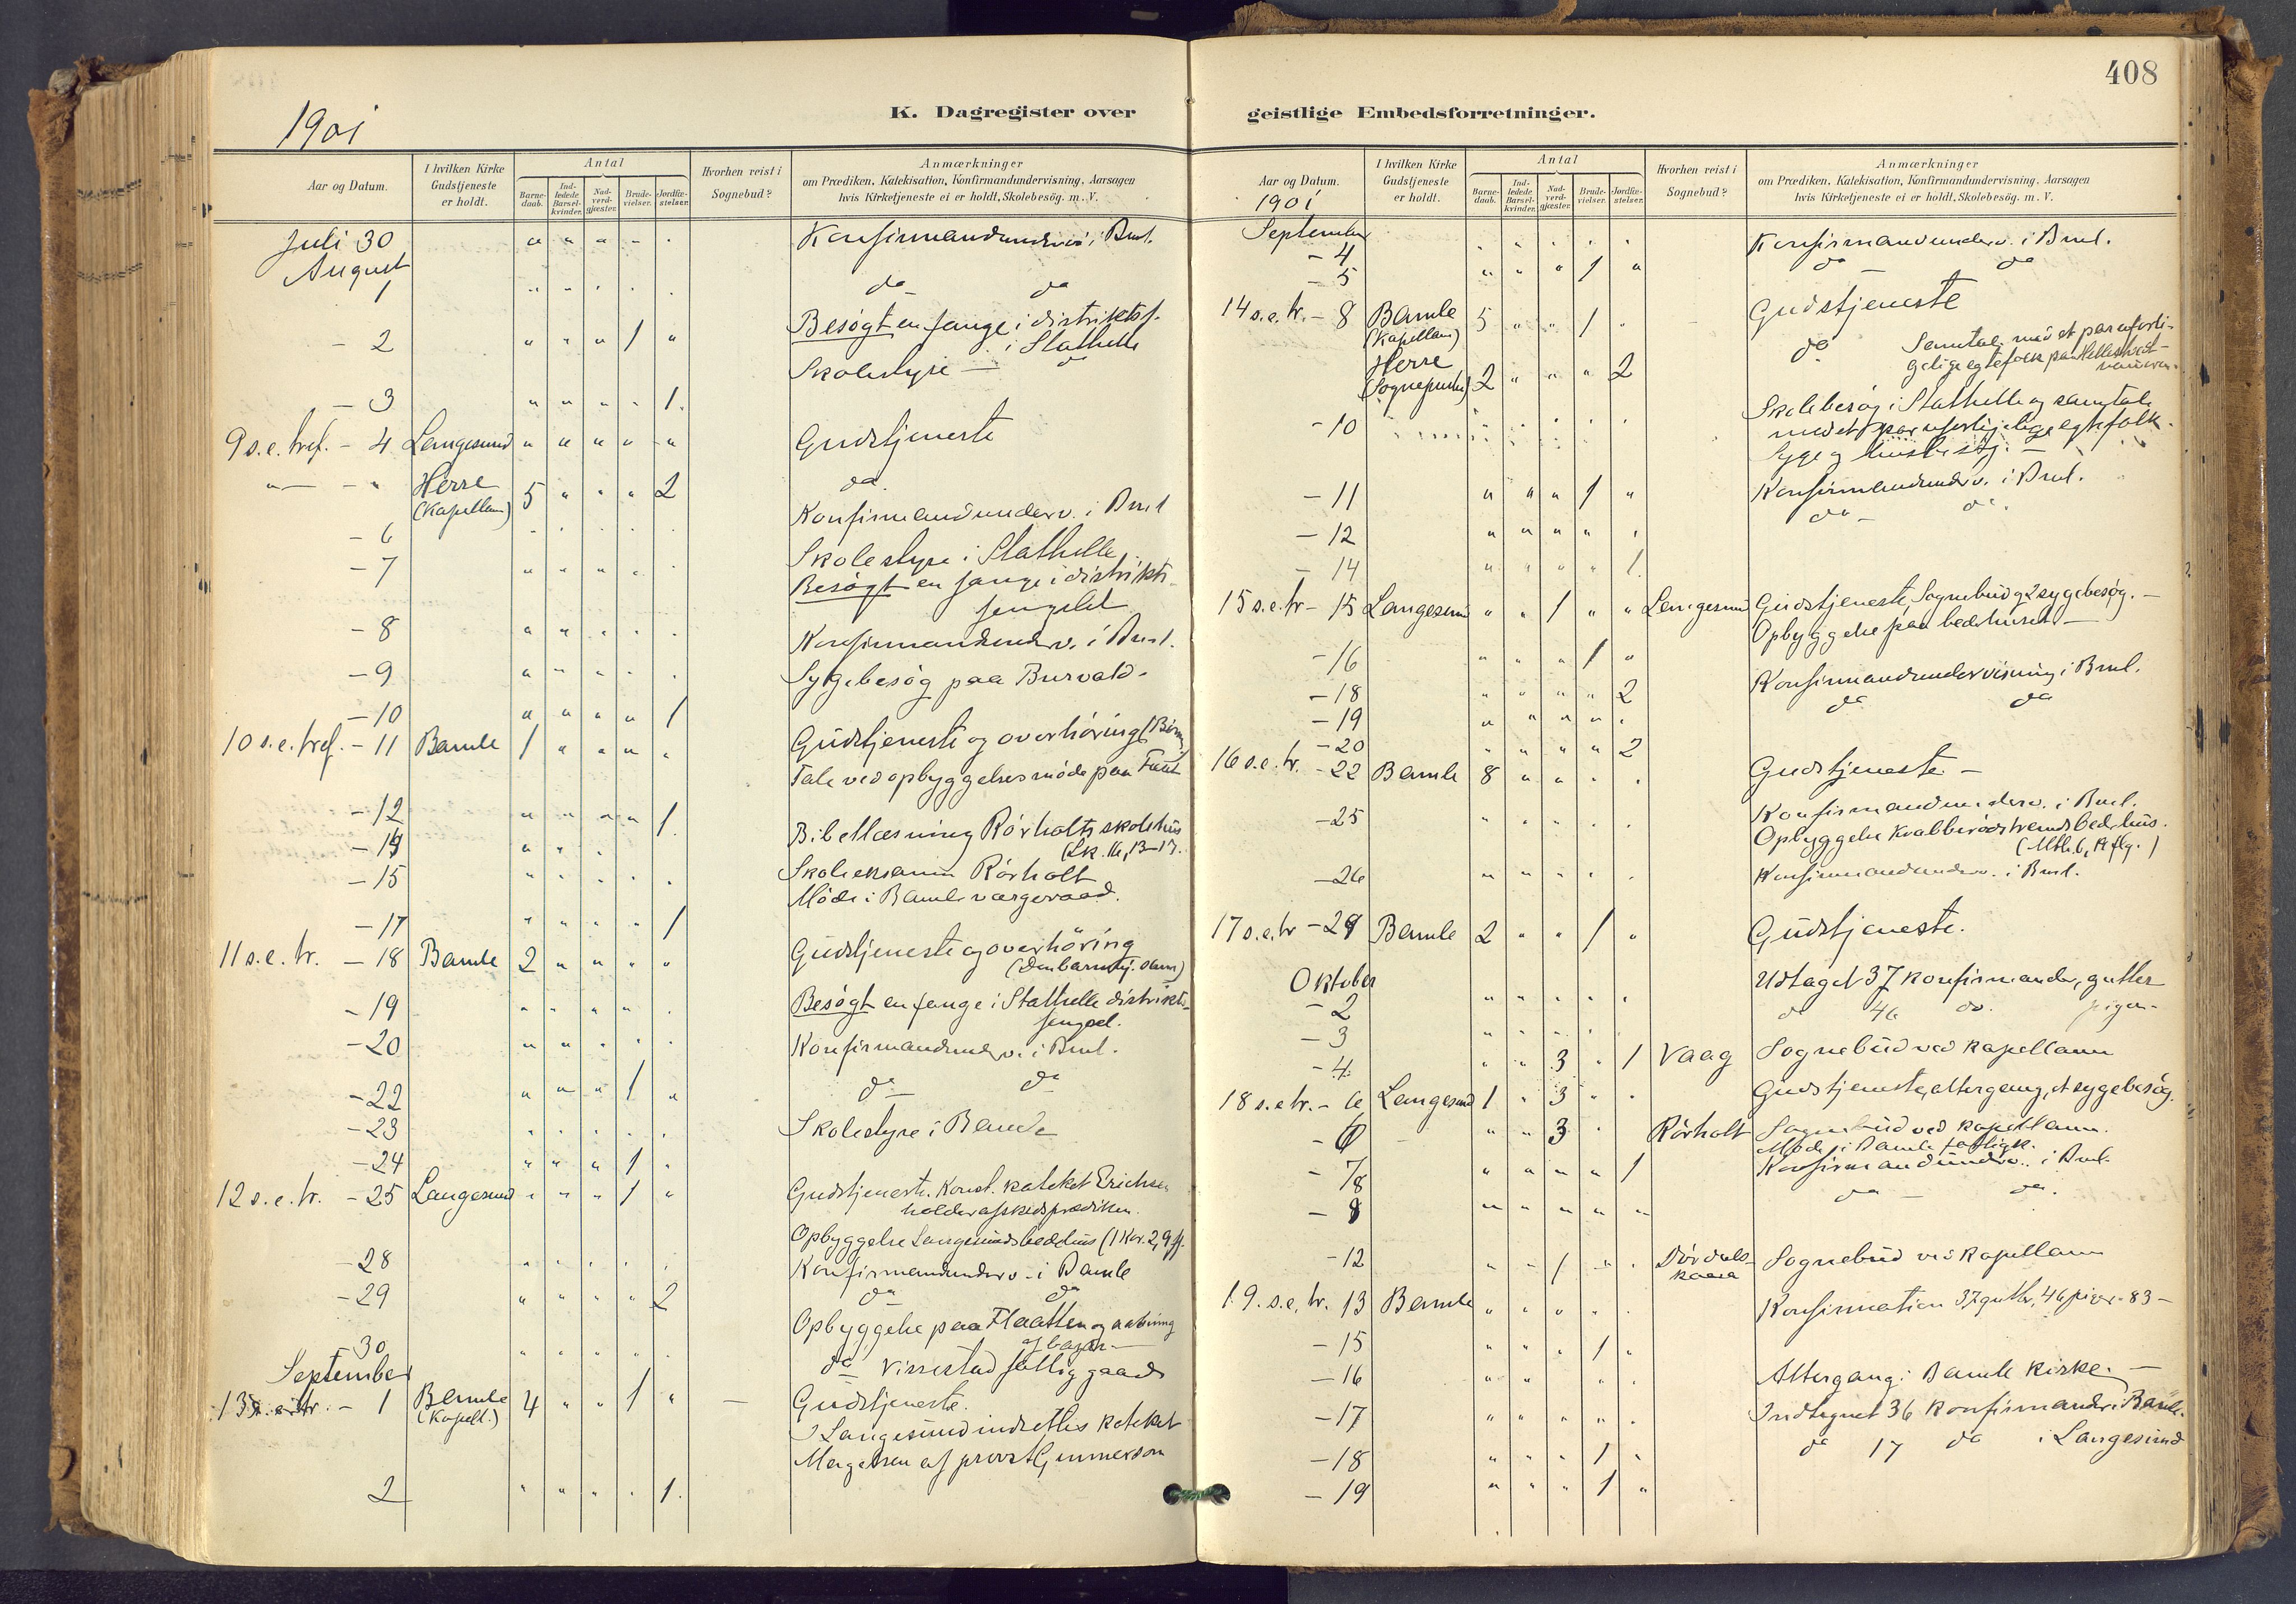 408
K. Dagregister over geistlige Embedsforretninger.
1901
Aar og Datum.
I hvilken Kirke Gudstjeneste er holdt.
Antal
Barne-daab.
Ind-ledede Barsel-kvinder.
Nad-verd-gjæster.
Brude-vielser.
Jordfæ-stelser.
Hvorhen reist i Sognebud?
Anmærkninger
om Prædiken, Katekisation, Konfirmandundervisning, Aarsagen
hvis Kirketjeneste ei er holdt, Skolebesøg. m. V.
Juli 30 " " " - . Konfirmandunderv. i Bml.
August
1 " " . . . do - do
- 2 " " " 1 " Besøgt en fange i distriktsf.
i Stathelle
Skolestyre - do
- 3 " " " . 1.
9 s. e. tref. - 4 Langesund " " " " " Gudstjeneste
" - - " Herre 5 " " " 2 do.
(Kapellan)
- 6 Konfirmandunderv. i Bml
- 7 " " " . . Skolestyre i Stathelle
Besøgt en fange i distrikts-
fengslet
- 8 " " . . . Konfirmandunderv. i Bml.
- 9 " " . . . Sygebesøg paa Burvald.
- 10 " " " " 1
10 s. e. tref. - 11 Bamle 1 " " " . Gudstjeneste og overhøring
Tale ved opbyggelsesmøde paa
- 12 " " " " 1.
- 14 " . . Bibellæsning Rörholts skolehus
(Lk. 16, 13-17.
- 15 " . . . . Skoleeksamen Rörholt
Møde i Bamle værgeraad.
- 17 " " . . 1
11 s. e. tr. - 18 Bamle 2 " " " " Gudstjeneste og overhöring
- 19 Besøgt en fange i Stathelle distrikts-
fengsel.
- 20 " " . . . Konfirmandunderv. i Bml.
- 22 " " " 1 " do - do
- 23 . . . . . Skolestyre i Bamle
- 24 " " " 1 .
12 s. e. tr. - 25 Langesund " " " 1 " Gudstjeneste. Konst. kateket Erichsen
holder afskedsprædiken.
Opbyggelse Langesunds bedehus (1 Kor. 2, 9 ff.
- 28 . . . . . Konfirmandunderv. i Bamle
- 29 " " " " 2 do - do
Opbyggelse paa Flaatten og aabning
af bazar. -
- 30 " . . . . do - Vissestad fattiggaard
September
13 s. e. tr. - 1 Bamle 4 " " 1 " - Gudstjeneste.
(Kapell.)
I Langesund indsettes kateket
Mogensen af provst Gunnerson
2 " " . . 1.
Aar og Datum.
I hvilken Kirke Gudstjeneste er holdt.
Antal
Barne-daab.
Ind-ledede Barsel-kvinder.
Nad-verd-gjæster.
Brude-vielser.
Jordfæ-stelser.
Hvorhen reist i Sognebud?
Anmærkninger
om Prædiken, Katekisation, Konfirmandundervisning, Aarsagen
hvis Kirketjeneste ei er holdt, Skolebesøg. m. V.
1901
September
- 4 . . . . . Konfirmandunderv. i Bml.
- 5 " " " 1 " do - do
14 s. e. tr. - 8 Bamle 5 " " 1 . Gudstjeneste
(Kapellan)
Herre 2 " " " 2 do Samtale med et par uforli-
(Sogneprest) gelige egtefolk paa
- 10 . . . . . Skolebesøg i Stathelle og samtale
med et par uforligelige egtefolk.
Syge og
- 11 " " " 1 " Konfirmandunderv. i Bml.
- 12 " " " " . do - do.
- 14 " . " " 1.
15 s. e. tr - 15 Langesund " " 1 " " Langesund Gudstjeneste, Sognebud og 2 sygebesøg. -
Opbyggelse paa bedehuset -
- 16 " . " 1 "
- 18 . . . . 2 Konfirmandundervisning i Bml.
- 19 " " " " . do do
- 20 " " " " 2
16 s. e. tr. - 22 Bamle 8 " " . . Gudstjeneste -
- 25 " " . . . Konfirmandunderv. i Bml.
Opbyggelse Krabberødstrands bedehus.
(Mtth. 6, 19 flg.)
- 26 " " . . . Konfirmandunderv. i Bml.
17 s. e. tr - 29 Bamle 2 " " 1 " Gudstjeneste.
Oktober
- 2 " " . . . Udtaget 37 konfirmander, gutter
- 3 " " . . do 46 do. piger -
- 4 . . 3 . 1 Vaag Sognebud ved kapellanen
18 s. e. tr. - 6 Langesund 1 . 3 . . Gudstjeneste, altergang, et sygebesøg.
" " 3 " Rörholt Sognebud ved kapellanen.
Møde i Bamle fattigk.
- 7/8 " " " " 1 Konfirmandunderv. i Bml.
- 8 " " " " " do - do.
- 12 " " 1 " . Dördals-
kaasa Sognebud ved kapellanen
19. s. e. tr. 13 Bamle " " " . . Konfirmation 37 gutter, 46 piger = 83 -
- 15 " " . 1 .
- 16 " " . . Altergang i Bamle kirke. -
- 17 " " " . . Indtegnet 36 konfirmander i Bamle.
- 18 " " . 1 . do 17 do i Langesund
- 19 " " . 1 "